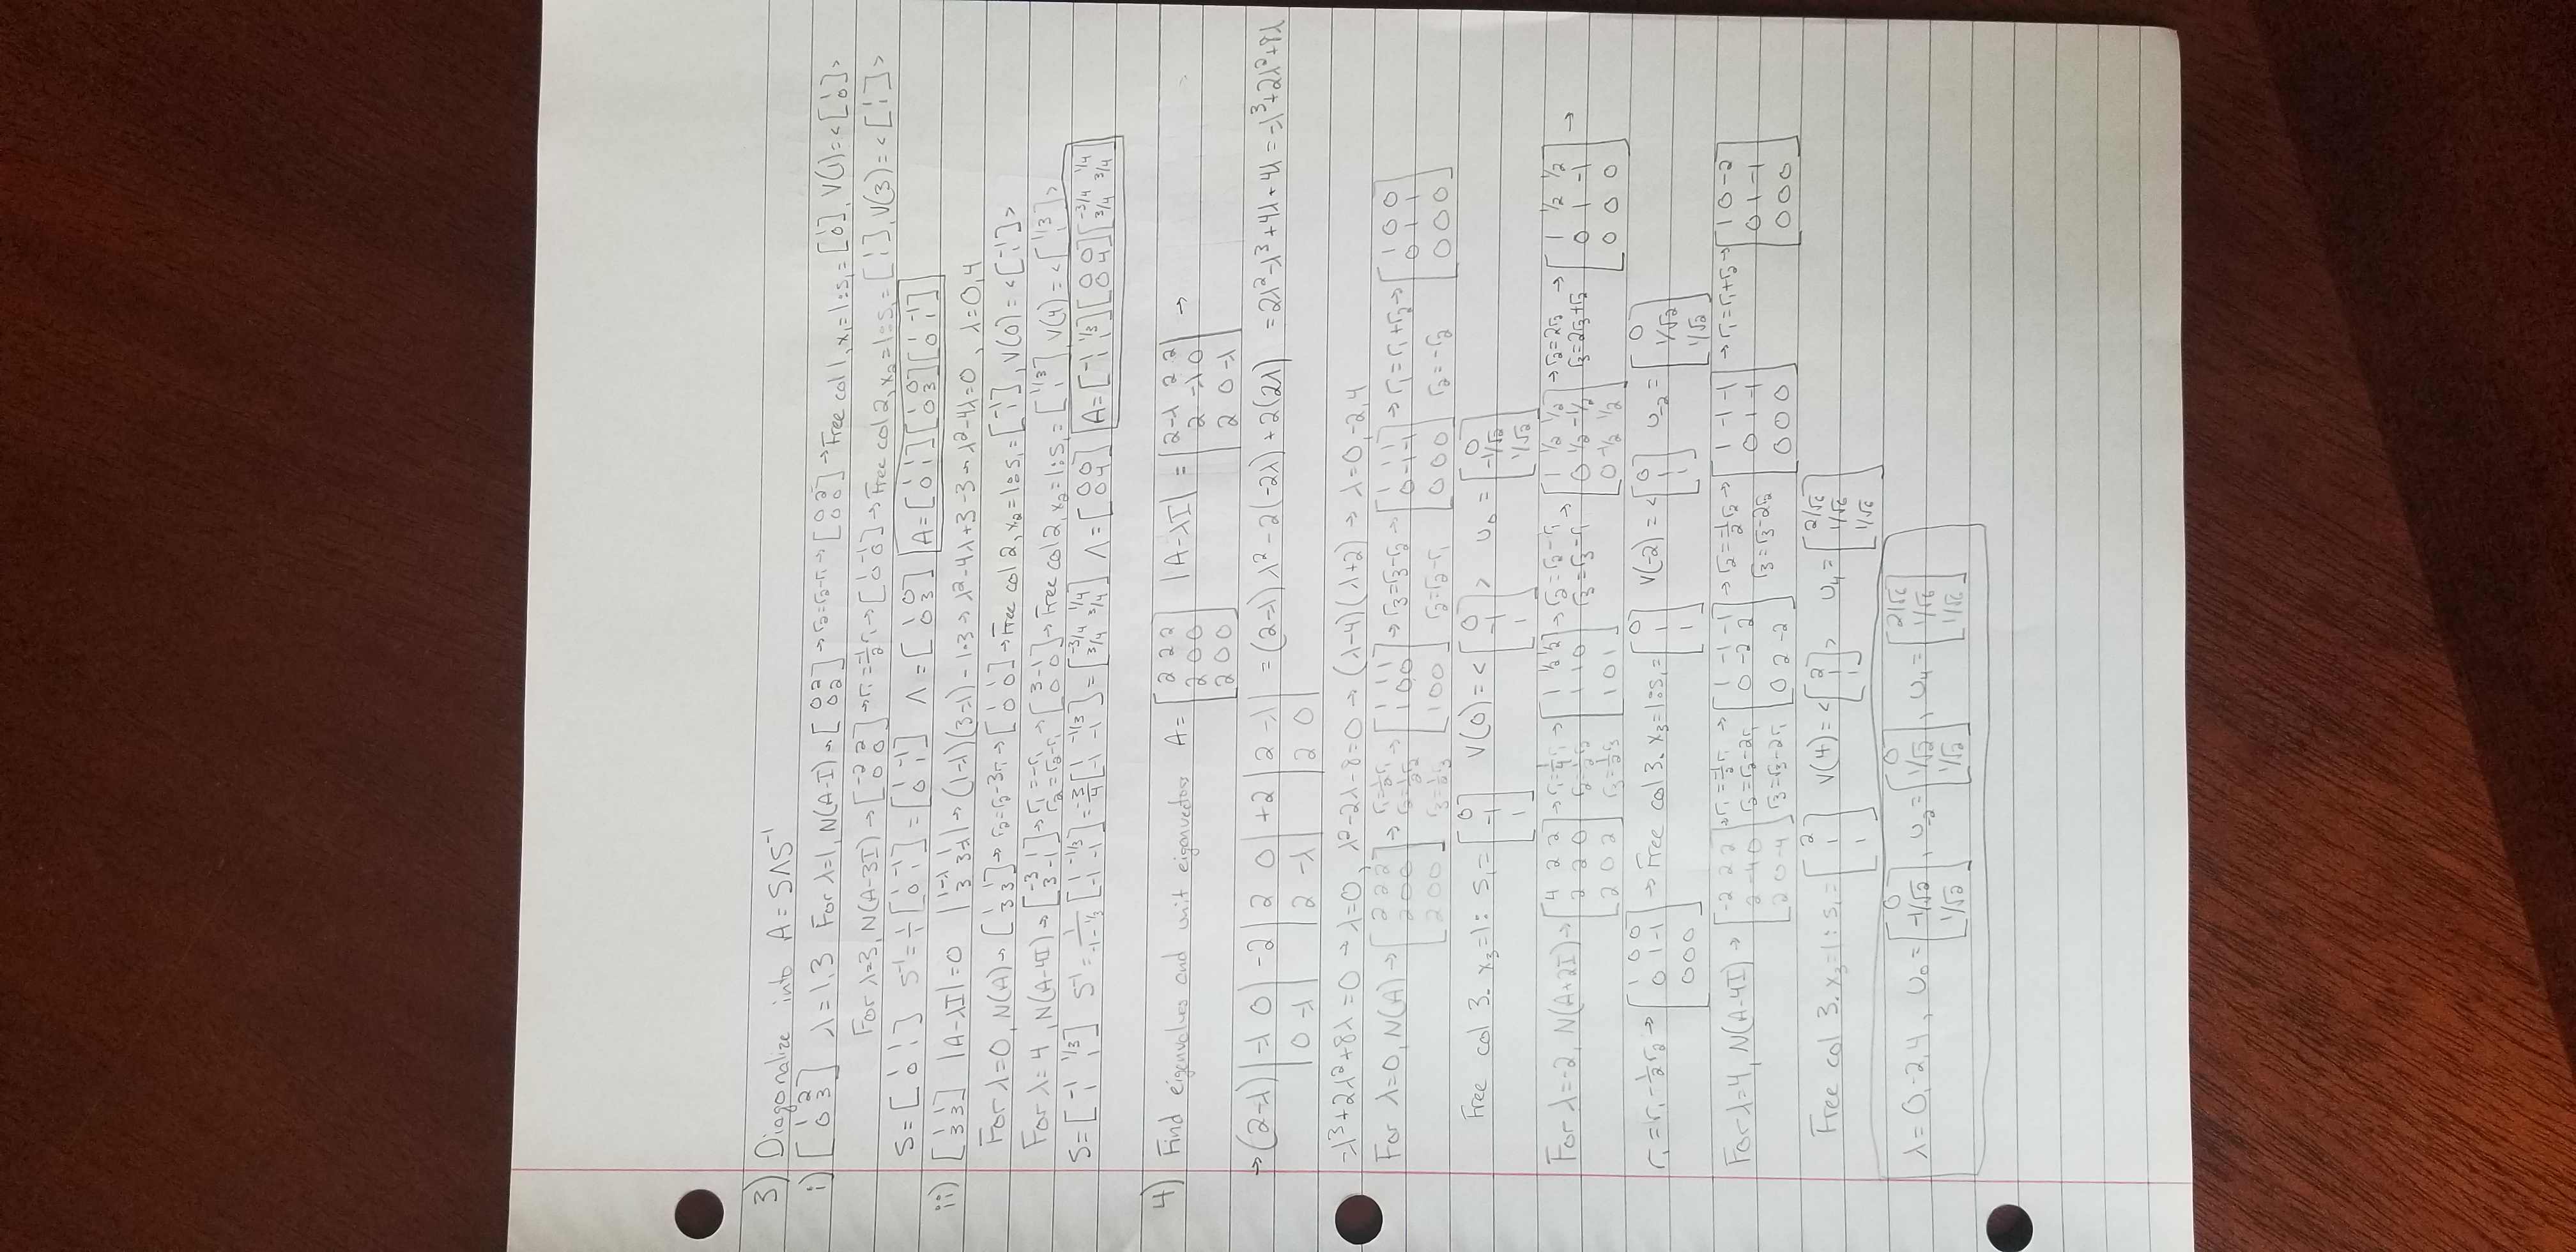 3) Diagonalize into A = SΛS⁻¹
i) [1 2; 0 3] λ=1,3 For λ=1, N(A-I) → [0 2; 0 2] → r₂=r₂-r₁ → [0 2; 0 0] → Free col 1, x₁=1: s₁=[1; 0], V(1)=<[1; 0]>
For λ=3, N(A-3I) → [-2 2; 0 0] → r₁=-1/2 r₁ → [1 -1; 0 0] → Free col 2, x₂=1: s₁=[1; 1], V(3)=<[1; 1]>
S=[1 1; 0 1] S⁻¹=1/1 [1 -1; 0 1]=[1 -1; 0 1] Λ=[1 0; 0 3] A=[1 1; 0 1][1 0; 0 3][1 -1; 0 1]
ii) [1 1; 3 3] |A-λI|=0 |1-λ 1; 3 3-λ| → (1-λ)(3-λ)-1·3 → λ²-4λ+3-3 → λ²-4λ=0, λ=0,4
For λ=0, N(A) → [1 1; 3 3] → r₂=r₂-3r₁ → [1 1; 0 0] → Free col 2, x₂=1: s₁=[-1; 1], V(0)=<[-1; 1]>
For λ=4, N(A-4I) → [-3 1; 3 -1] → r₁=-r₁ r₂=r₂-r₁ → [3 -1; 0 0] → Free col 2, x₂=1: s₁=[1/3; 1], V(4)=<[1/3; 1]>
S=[-1 1/3; 1 1] S⁻¹=1/(-1-1/3) [1 -1/3; -1 -1]=-3/4 [1 -1/3; -1 -1]=[-3/4 1/4; 3/4 3/4] Λ=[0 0; 0 4] A=[-1 1/3; 1 1][0 0; 0 4][-3/4 1/4; 3/4 3/4]
4) Find eigenvalues and unit eigenvectors A=[2 2 2; 2 0 0; 2 0 0] |A-λI| = |2-λ 2 2; 2 -λ 0; 2 0 -λ| →
→ (2-λ)|-λ 0; 0 -λ| -2|2 0; 2 -λ| +2|2 -λ; 2 0| = (2-λ)λ²-2(-2λ)+2(2λ) = 2λ²-λ³+4λ+4λ = -λ³+2λ²+8λ
-λ³+2λ²+8λ=0 → λ=0, λ²-2λ-8=0 → (λ-4)(λ+2) → λ=0,-2,4
For λ=0, N(A) → [2 2 2; 2 0 0; 2 0 0] → r₁=1/2 r₁ r₂=1/2 r₂ r₃=1/2 r₃ → [1 1 1; 1 0 0; 1 0 0] → r₃=r₃-r₂ r₂=r₂-r₁ → [1 1 1; 0 -1 -1; 0 0 0] → r₁=r₁+r₂ r₂=-r₂ → [1 0 0; 0 1 1; 0 0 0]
Free col 3. x₃=1: s₁=[0; -1; 1] V(0)=<[0; -1; 1]> u₀=[0; -1/√2; 1/√2]
For λ=-2, N(A+2I) → [4 2 2; 2 2 0; 2 0 2] → r₁=1/4 r₁ r₂=1/2 r₂ r₃=1/2 r₃ → [1 1/2 1/2; 1 1 0; 1 0 1] → r₂=r₂-r₁ r₃=r₃-r₁ → [1 1/2 1/2; 0 1/2 -1/2; 0 -1/2 1/2] → r₂=2r₂ r₃=2r₃+r₂ → [1 1/2 1/2; 0 1 -1; 0 0 0] →
r₁=r₁-1/2 r₂ → [1 0 0; 0 1 -1; 0 0 0] → Free col 3. x₃=1: s₁=[0; 1; 1] V(-2)=<[0; 1; 1]> u₋₂=[0; 1/√2; 1/√2]
For λ=4, N(A-4I) → [-2 2 2; 2 -4 0; 2 0 -4] → r₁=-1/2 r₁ r₂=r₂-2r₁ r₃=r₃-2r₁ → [1 -1 -1; 0 -2 2; 0 2 -2] → r₂=-1/2 r₂ r₃=r₃-2r₂ → [1 -1 -1; 0 1 -1; 0 0 0] → r₁=r₁+r₂ → [1 0 -2; 0 1 -1; 0 0 0]
Free col 3. x₃=1: s₁=[2; 1; 1] V(4)=<[2; 1; 1]> u₄=[2/√6; 1/√6; 1/√6]
λ=0,-2,4, u₀=[0; -1/√2; 1/√2], u₋₂=[0; 1/√2; 1/√2], u₄=[2/√6; 1/√6; 1/√6]